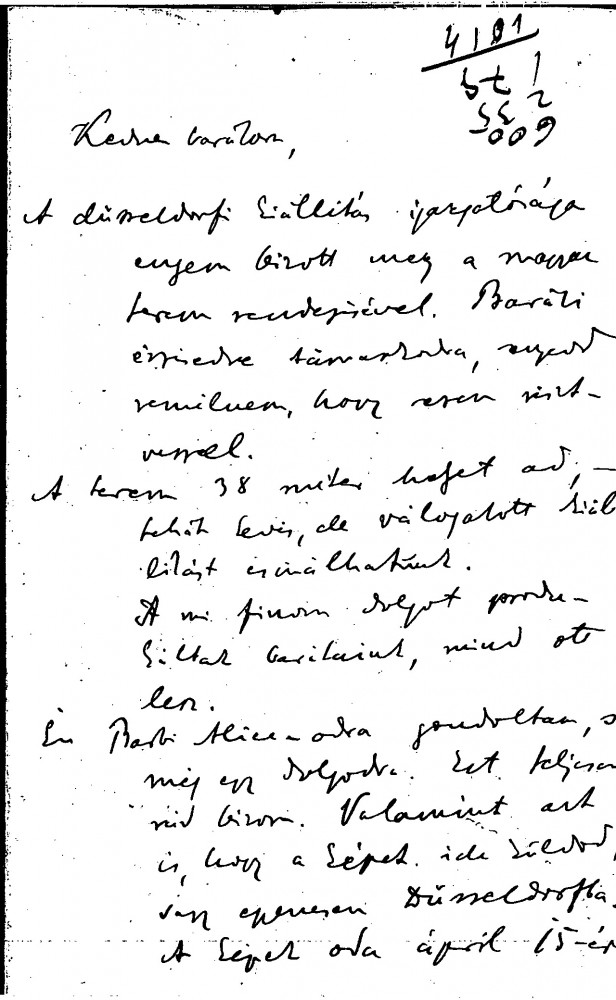 4181
179
235
600
Kedves barátom,
A düsseldorfi kiállitás igazgatósága
engem bizott meg a magyar
terem rendezésével. Baráti
érzésedre támaszkodva, egyedül
remélnem, hogy ezen részt-
veszel.
A terem 38 méter helyet ad, –
tehát kevés, de válogatott kiál
litást csinálhatunk.
A mi finom dolgot produ-
káltak barátaink, mind ott
lesz.
Én Barbi Alice-odra gondoltam, s
még egy dolgodra. Ezt teljesen
rád bizom. Valamint azt
is, hogy a képet ide küldöd,
vagy egyenesen Düsseldorfba.
A képek oda ápril 15-én